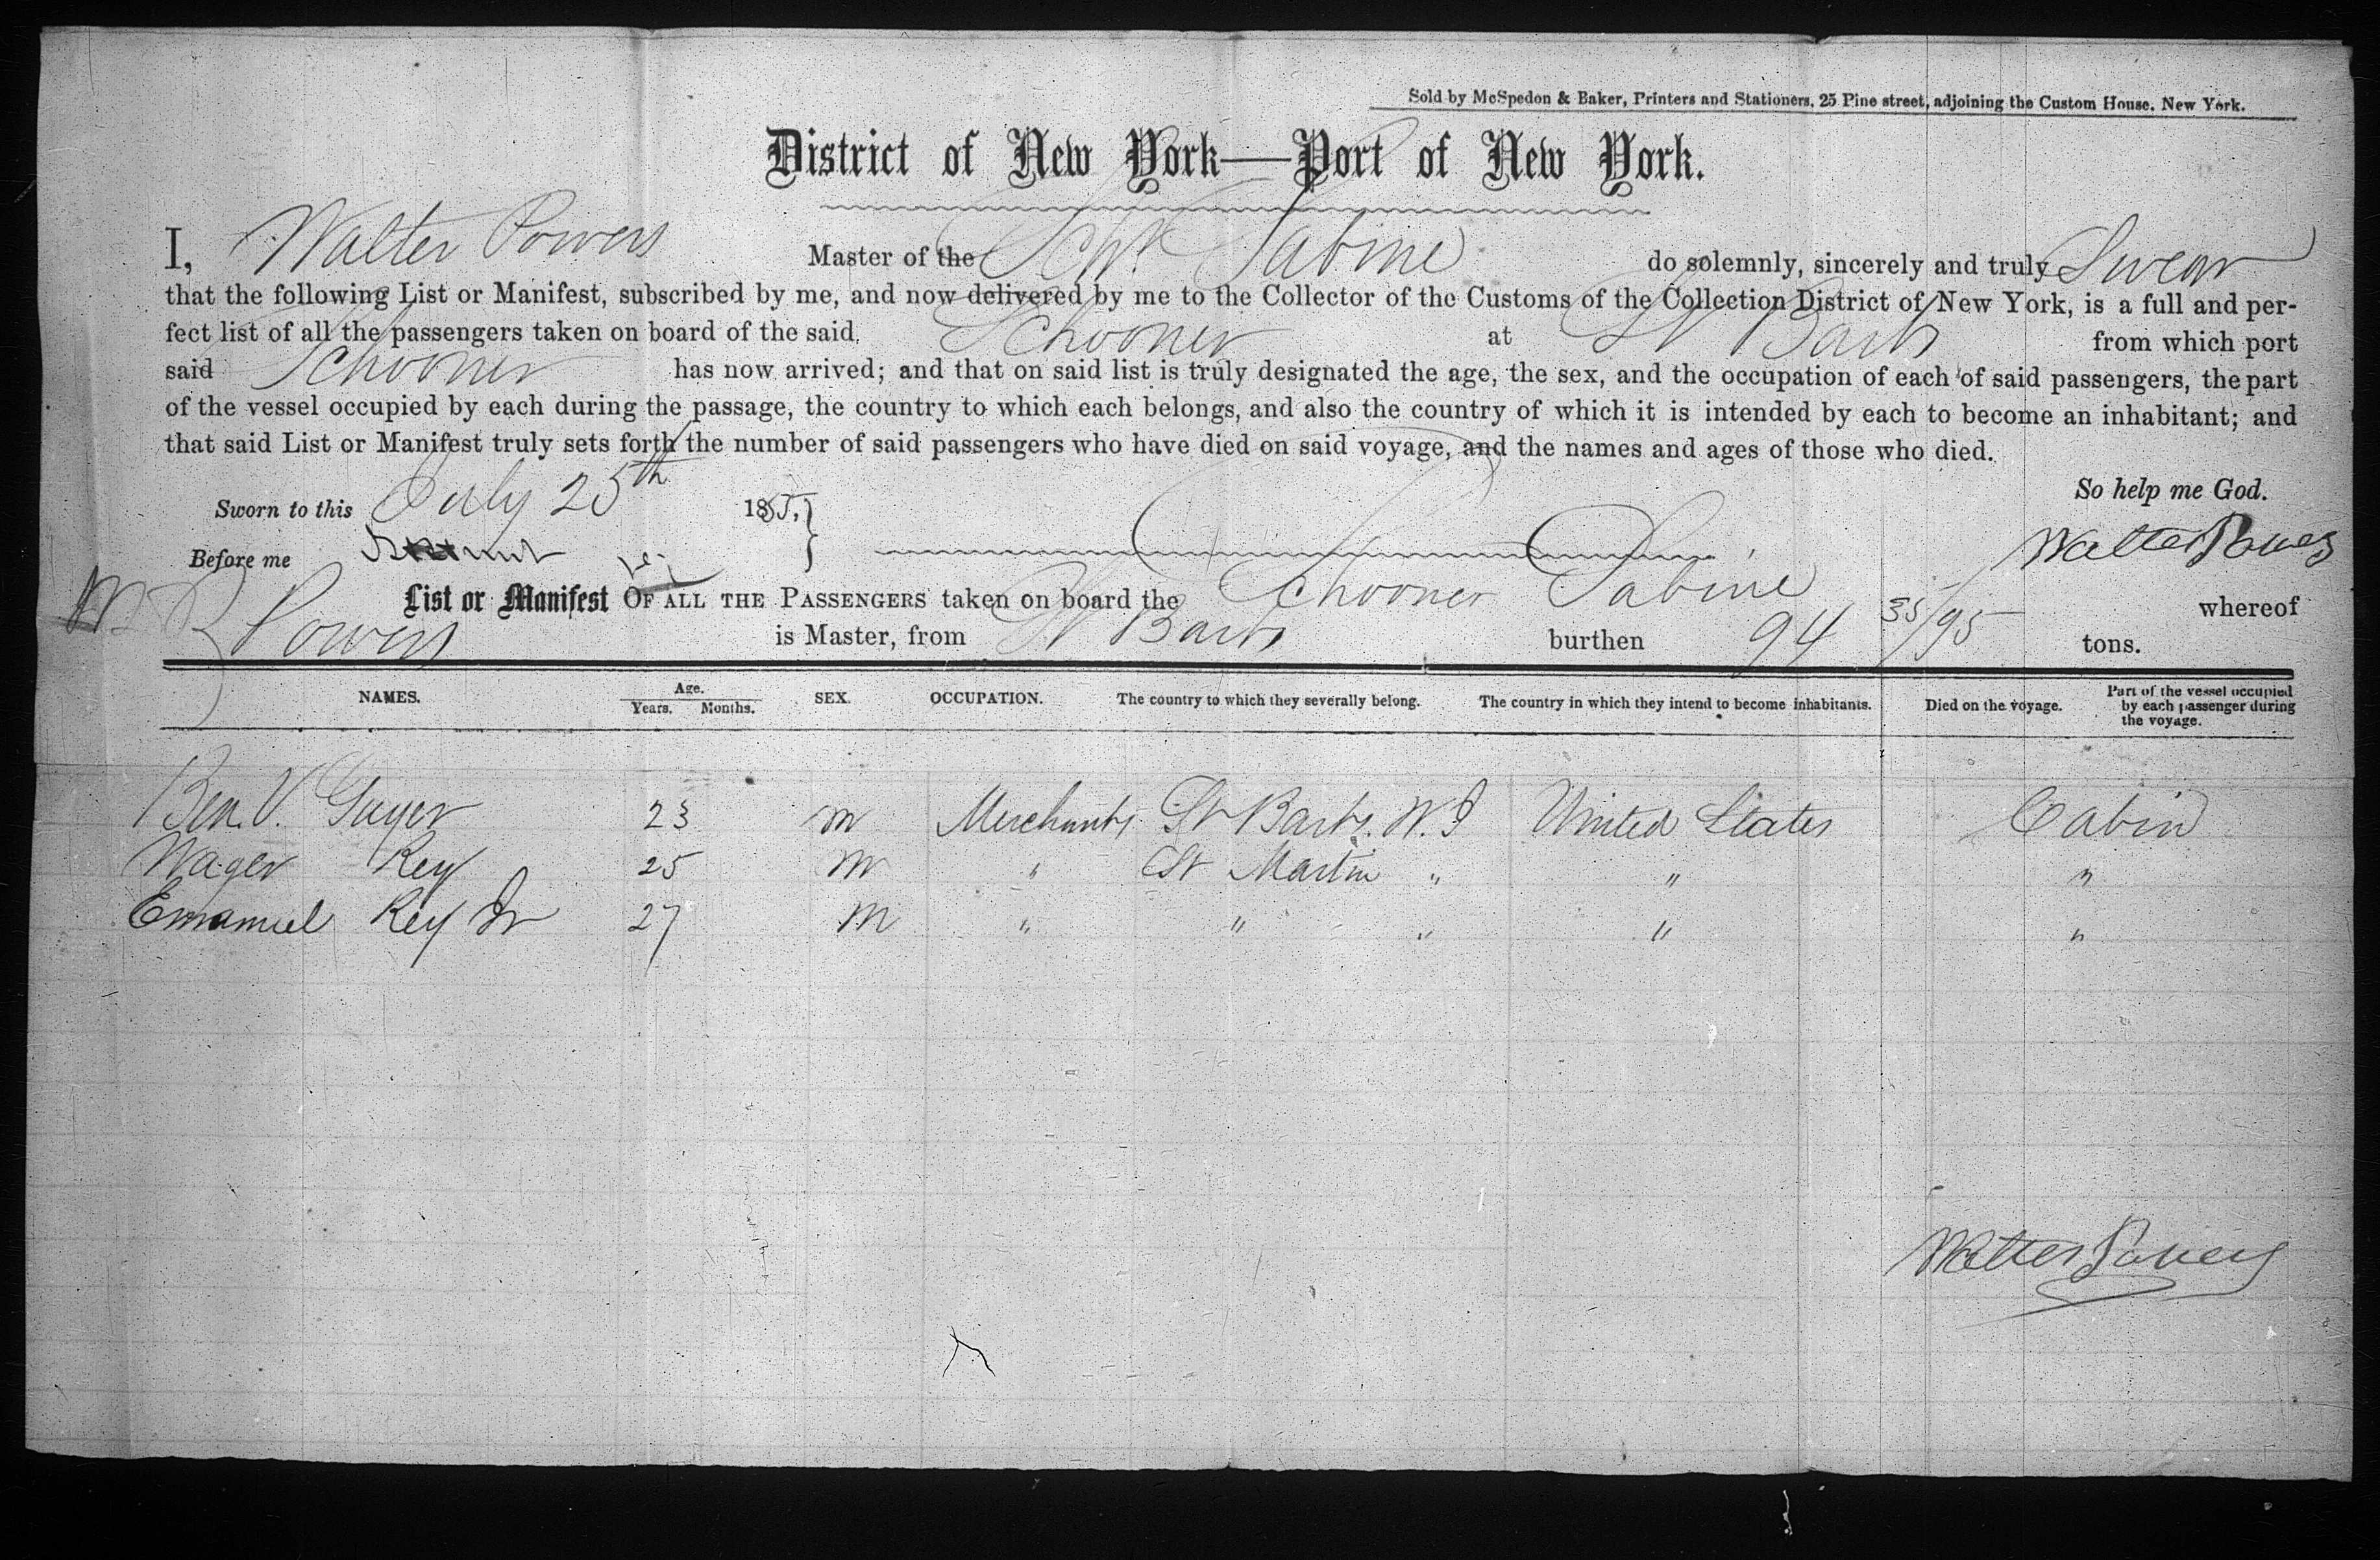 Sold by McSpedon & Baker, Printers and Stationers, 25 Pine street, adjoining the Custom House, New York.
District of New York—Port of New York.
I, Walter Powers Master of the Schr. Sabine do solemnly, sincerely and truly Swear
that the following List or Manifest, subscribed by me, and now delivered by me to the Collector of the Customs of the Collection District of New York, is a full and per-
fect list of all the passengers taken on board of the said, Schooner at St Barts from which port
said Schooner has now arrived; and that on said list is truly designated the age, the sex, and the occupation of each of said passengers, the part
of the vessel occupied by each during the passage, the country to which each belongs, and also the country of which it is intended by each to become an inhabitant; and
that said List or Manifest truly sets forth the number of said passengers who have died on said voyage, and the names and ages of those who died.
So help me God.
Sworn to this July 25th 1855.
Walter Powers
Before me
List or Manifest OF ALL THE PASSENGERS taken on board the Schooner Sabine whereof
Powers is Master, from St Barts burthen 94 35/95 tons.
NAMES. Age. Years. Months. SEX. OCCUPATION. The country to which they severally belong. The country in which they intend to become inhabitants. Died on the voyage. Part of the vessel occupied by each passenger during the voyage.
Ben. V. Guyer 23 m Merchants St Barts. W. I United States Cabin
Wager Rey 25 m " St Martin " " "
Emanuel Rey Jr 27 m " " " " "
Walter Powers